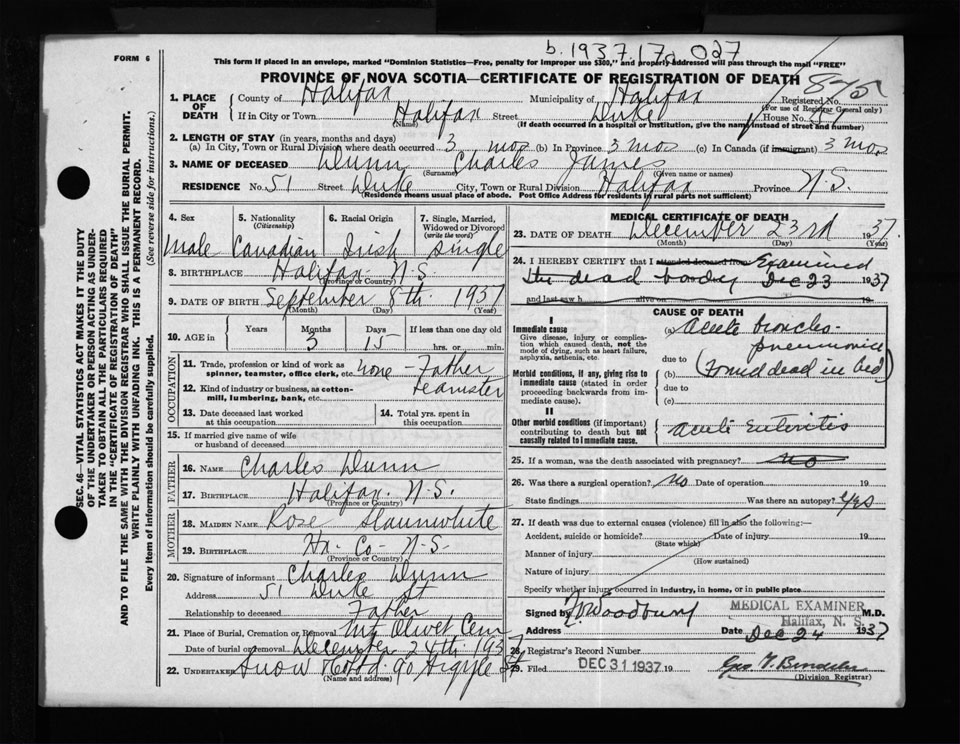 b. 1937.17- 027
FORM 6
This form if placed in an envelope, marked "Dominion Statistics—Free, penalty for improper use $300," and properly addressed will pass through the mail "FREE"
PROVINCE OF NOVA SCOTIA—CERTIFICATE OF REGISTRATION OF DEATH
875
1. PLACE OF DEATH
County of Halifax Municipality of Halifax Registered No.
(For use of Registrar General only)
If in City or Town Halifax Street Duke House No. 51
(Name) (If death occurred in a hospital or institution, give the name instead of street and number)
2. LENGTH OF STAY (in years, months and days)
(a) In City, Town or Rural Division where death occurred 3 mos (b) In Province 3 mos (c) In Canada (if immigrant) 3 mos
3. NAME OF DECEASED Dunn Charles James
(Surname) (Given name or names)
RESIDENCE No. 51 Street Duke City, Town or Rural Division Halifax Province N.S.
(Residence means usual place of abode. Post Office Address for residents in rural parts not sufficient)
SEC. 46—VITAL STATISTICS ACT MAKES IT THE DUTY
OF THE UNDERTAKER OR PERSON ACTING AS UNDER-
TAKER TO OBTAIN ALL THE PARTICULARS REQUIRED
IN THE "CERTIFICATE OF REGISTRATION OF DEATH"
AND TO FILE THE SAME WITH THE DIVISION REGISTRAR WHO SHALL ISSUE THE BURIAL PERMIT.
WRITE PLAINLY WITH UNFADING INK. THIS IS A PERMANENT RECORD.
Every item of information should be carefully supplied. (See reverse side for instructions.)
4. Sex 5. Nationality (Citizenship) 6. Racial Origin 7. Single, Married, Widowed or Divorced (write the word)
Male Canadian Irish Single
8. BIRTHPLACE Halifax N.S.
(Province or Country)
9. DATE OF BIRTH September 8th. 1937
(Month) (Day) (Year)
10. AGE Years Months Days If less than one day old
3 15 hrs. or min.
OCCUPATION
11. Trade, profession or kind of work as spinner, teamster, office clerk, etc. none - Father
12. Kind of industry or business, as cotton-mill, lumbering, bank, etc. teamster
13. Date deceased last worked at this occupation
14. Total yrs. spent in this occupation
15. If married give name of wife or husband of deceased
FATHER
16. NAME Charles Dunn
17. BIRTHPLACE Halifax. N.S.
(Province or Country)
MOTHER
18. MAIDEN NAME Rose Slaunwhite
19. BIRTHPLACE Hx. Co. N.S.
(Province or Country)
20. Signature of informant Charles Dunn
Address 51 Duke St
Relationship to deceased Father
21. Place of Burial, Cremation or Removal Mt. Olivet Cem
Date of burial or removal December 24th. 1937
22. UNDERTAKER Snow & Co. 90 Argyle St
(Name and address)
MEDICAL CERTIFICATE OF DEATH
23. DATE OF DEATH December 23rd 1937.
(Month) (Day) (Year)
24. I HEREBY CERTIFY that I attended deceased from Examined
the dead body Dec 23 1937
and last saw h alive on 19
CAUSE OF DEATH
I
Immediate cause
Give disease, injury or complication which caused death, not the mode of dying, such as heart failure, asphyxia, asthenia, etc.
(a) Acute broncho-
pneumonia
due to
Morbid conditions, if any, giving rise to immediate cause (stated in order proceeding backwards from immediate cause).
(b) (Found dead in bed)
due to
(c)
II
Other morbid conditions (if important) contributing to death but not causally related to immediate cause.
acute Enteritis
25. If a woman, was the death associated with pregnancy? no
26. Was there a surgical operation? No Date of operation 19
State findings Was there an autopsy? Yes
27. If death was due to external causes (violence) fill in also the following:—
Accident, suicide or homicide? Date of injury 19
(State which)
Manner of injury
(How sustained)
Nature of injury
Specify whether injury occurred in industry, in home, or in public place
Signed by Woodbury M.D.
MEDICAL EXAMINER
Halifax, N. S.
Address Date Dec 24 1937
28. Registrar's Record Number
29. Filed DEC 31 1937.
(Division Registrar)